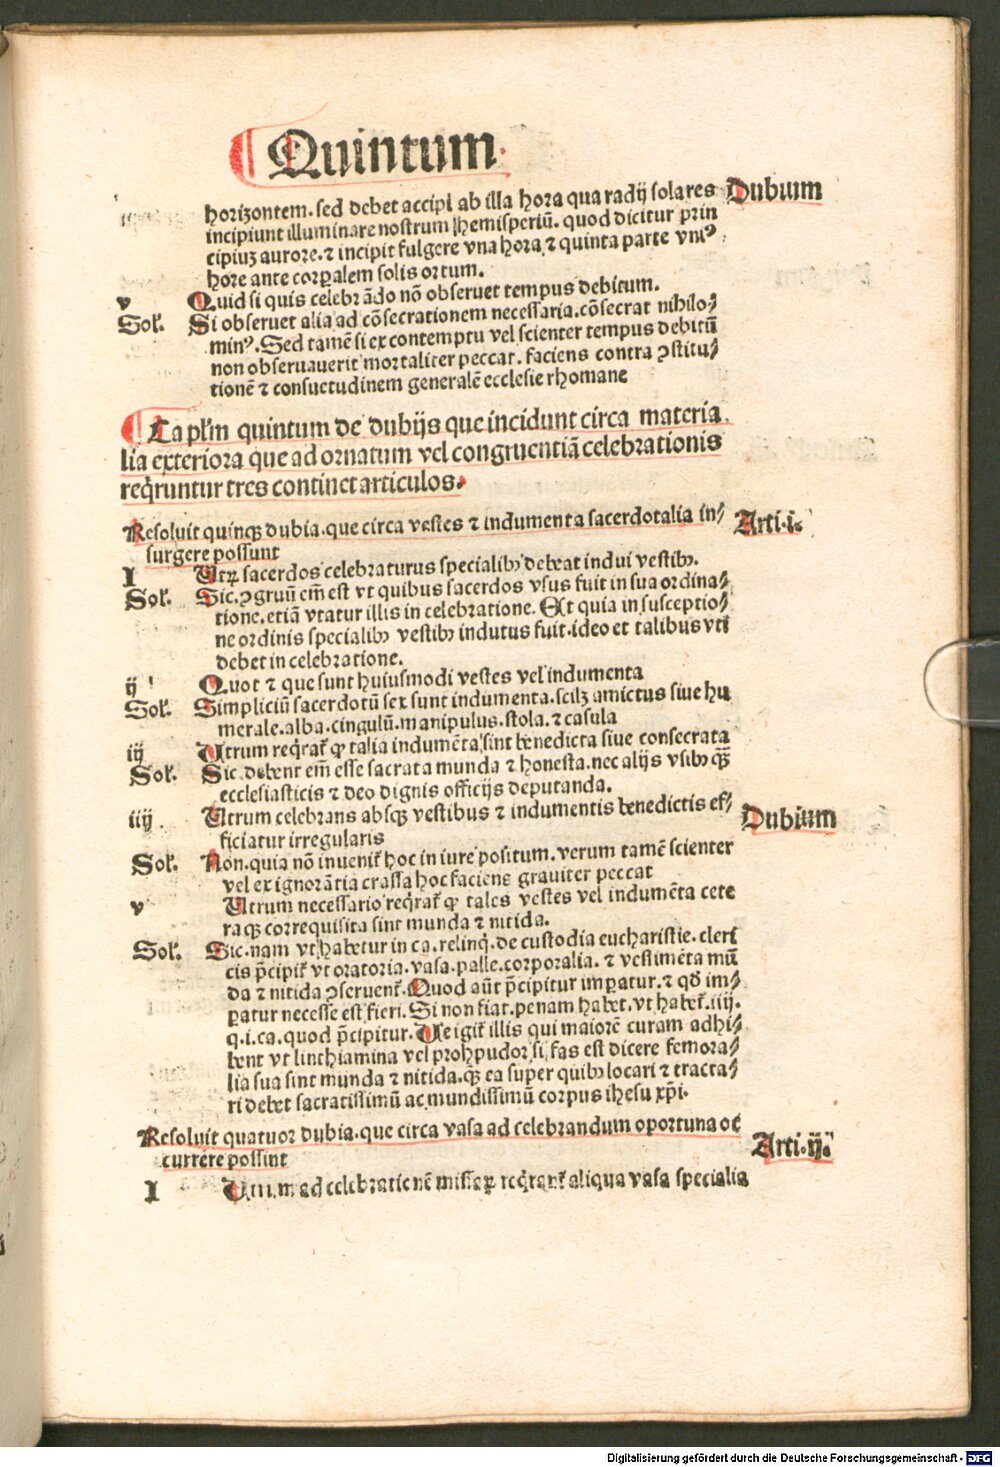 Quintum.
horizontem. sed debet accipi ab illa hora qua radij solares Dubium
incipiunt illuminare nostrum hemisperiū. quod dicitur prin
cipiuꝫ aurore. ⁊ incipit fulgere vna hora ⁊ quinta parte vniꝰ
hore ante corꝑalem solis ortum.
v Quid si quis celebrādo nō obseruet tempus debitum.
Sol. Si obseruet alia ad cōsecrationem necessaria. cōsecrat nihilo⸗
minꝰ. Sed tamē si ex contemptu vel scienter tempus debitū
non obseruauerit mortaliter peccat. faciens contra ꝯstitu⸗
tionē ⁊ consuetudinem generalē ecclesie rhomane
Capl'm quintum de dubijs que incidunt circa materia
lia exteriora que ad ornatum vel congruentiā celebrationis
reqͥruntur tres continet articulos.
Resoluit quinqꝫ dubia. que circa vestes ⁊ indumenta sacerdotalia in⸗ Arti. i.
surgere possunt
I Utrꝫ sacerdos celebraturus specialibꝰ debeat indui vestibꝰ.
Sol. Sic. ꝯgruū em̄ est vt quibus sacerdos vsus fuit in sua ordina⸗
tione. etiā vtatur illis in celebratione. Et quia in susceptio⸗
ne ordinis specialibꝰ vestibꝰ indutus fuit. ideo et talibus vti
debet in celebratione.
ij Quot ⁊ que sunt huiusmodi vestes vel indumenta
Sol. Simpliciū sacerdotū sex sunt indumenta. scilꝫ amictus siue hu
merale. alba. cingulū. manipulus. stola. ⁊ casula
iij Utrum reqͥrat᷑ ꝙ talia indumēta sint benedicta siue consecrata
Sol. Sic. debent em̄ esse sacrata munda ⁊ honesta. nec alijs vsibꝰ qꝫ̄
ecclesiasticis ⁊ deo dignis officijs deputanda.
iiij Utrum celebrans absqꝫ vestibus ⁊ indumentis benedictis ef⸗ Dubium
ficiatur irregularis
Sol. Non. quia nō inuenit᷑ hoc in iure positum. verum tamē scienter
vel ex ignorātia crassa hoc faciens grauiter peccat
v Utrum necessario reqͥrat᷑ ꝙ tales vestes vel indumēta cete
raqꝫ correquisita sint munda ⁊ nitida.
Sol. Sic. nam vt habetur in ca. relinqͥ. de custodia eucharistie. cleri
cis p̄cipit᷑ vt oratoria. vasa. palle. corporalia. ⁊ vestimēta mū
da ⁊ nitida ꝯseruent᷑. Quod aūt p̄cipitur imꝑatur. ⁊ qd̄ im⸗
ꝑatur necesse est fieri. Si non fiat. penam habet. vt habet᷑. iiij.
q. i. ca. quod p̄cipitur. Ue igit᷑ illis qui maiorē curam adhi⸗
bent vt linthiamina vel prohpudor si fas est dicere femora⸗
lia sua sint munda ⁊ nitida. qꝫ̄ ea super quibꝰ locari ⁊ tracta⸗
ri debet sacratissimū ac mundissimū corpus ihesu xp̄i.
Resoluit quatuor dubia. que circa vasa ad celebrandum oportuna oc Arti. ij.
currere possint
I ad celebrationē misse reqͥrant᷑ aliqua vasa specialia
Digitalisierung gefördert durch die Deutsche Forschungsgemeinschaft - DFG